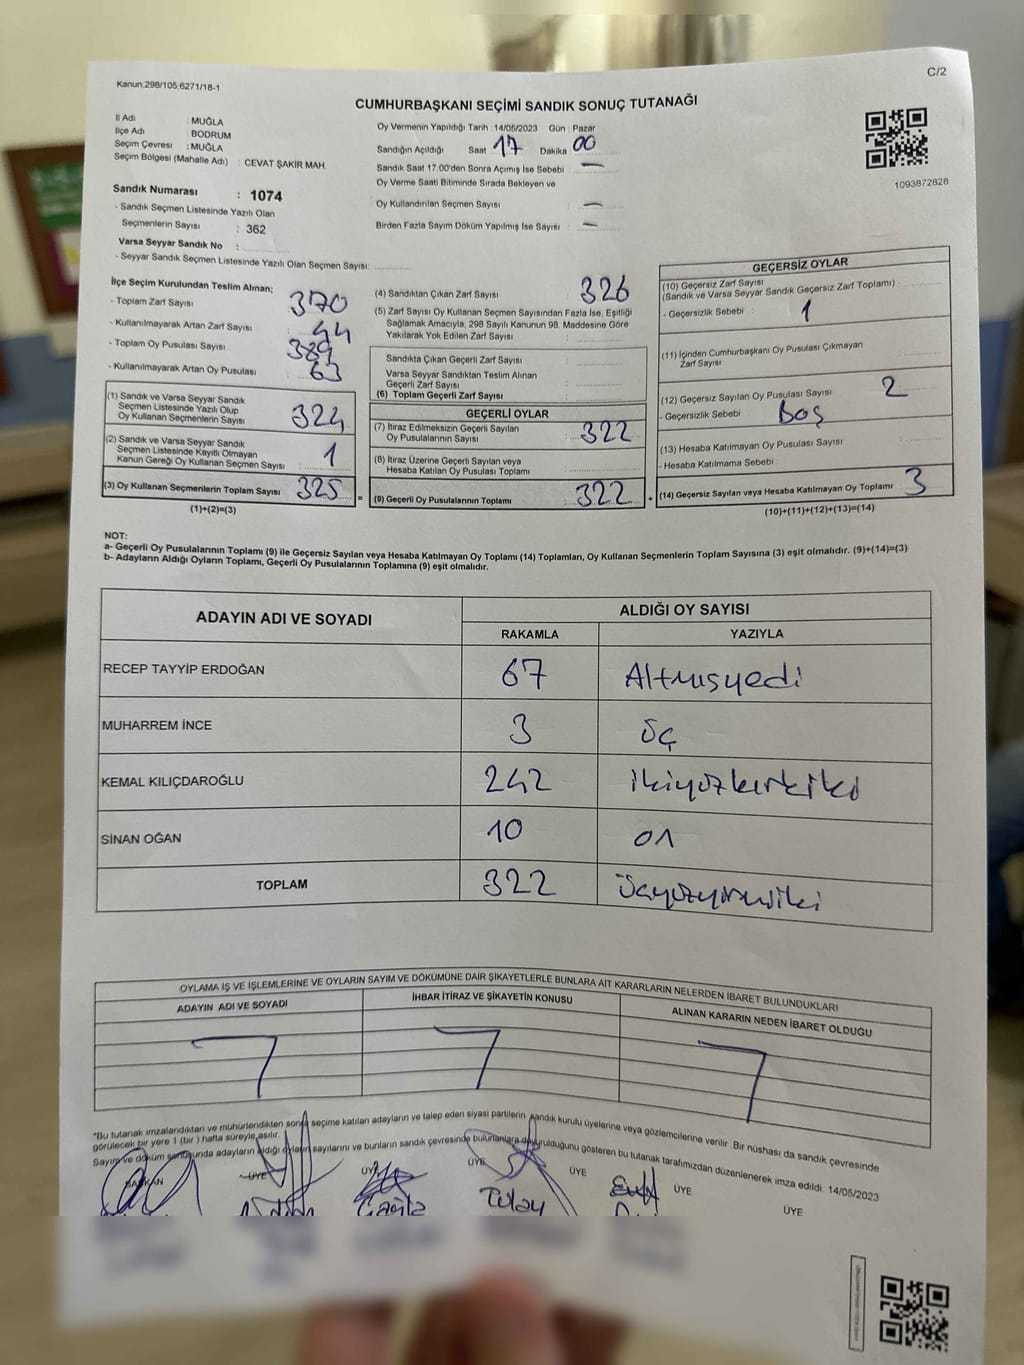 Kanun:298/105,6271/18-1
C/2
CUMHURBAŞKANI SEÇİMİ SANDIK SONUÇ TUTANAĞI
İl Adı : MUĞLA
İlçe Adı : BODRUM
Seçim Çevresi : MUĞLA
Seçim Bölgesi (Mahalle Adı) : CEVAT ŞAKİR MAH
Sandık Numarası : 1074
- Sandık Seçmen Listesinde Yazılı Olan
Seçmenlerin Sayısı : 362
Varsa Seyyar Sandık No :
- Seyyar Sandık Seçmen Listesinde Yazılı Olan Seçmen Sayısı:
Oy Vermenin Yapıldığı Tarih :14/05/2023 Gün : Pazar
Sandığın Açıldığı Saat 17 Dakika 00
Sandık Saat 17.00'den Sonra Açımış İse Sebebi : —
Oy Verme Saati Bitiminde Sırada Bekleyen ve
Oy Kullandırılan Seçmen Sayısı : —
Birden Fazla Sayım Döküm Yapılmış İse Sayısı : —
1093872828
İlçe Seçim Kurulundan Teslim Alınan;
- Toplam Zarf Sayısı : 370
- Kullanılmayarak Artan Zarf Sayısı : 44
- Toplam Oy Pusulası Sayısı : 389
- Kullanılmayarak Artan Oy Pusulası : 63
(1) Sandık ve Varsa Seyyar Sandık
Seçmen Listesinde Yazılı Olup
Oy Kullanan Seçmenlerin Sayısı : 324
(2) Sandık ve Varsa Seyyar Sandık
Seçmen Listesinde Kayıtlı Olmayan
Kanun Gereği Oy Kullanan Seçmen Sayısı : 1
(3) Oy Kullanan Seçmenlerin Toplam Sayısı : 325
(1)+(2)=(3)
(4) Sandıktan Çıkan Zarf Sayısı : 326
(5) Zarf Sayısı Oy Kullanan Seçmen Sayısından Fazla İse, Eşitliği
Sağlamak Amacıyla, 298 Sayılı Kanunun 98. Maddesine Göre
Yakılarak Yok Edilen Zarf Sayısı :
Sandıkta Çıkan Geçerli Zarf Sayısı :
Varsa Seyyar Sandıktan Teslim Alınan
Geçerli Zarf Sayısı :
(6) Toplam Geçerli Zarf Sayısı :
=
GEÇERLİ OYLAR
(7) İtiraz Edilmeksizin Geçerli Sayılan
Oy Pusulalarının Sayısı : 322
(8) İtiraz Üzerine Geçerli Sayılan veya
Hesaba Katılan Oy Pusulası Toplamı :
(9) Geçerli Oy Pusulalarının Toplamı : 322
+
GEÇERSİZ OYLAR
(10) Geçersiz Zarf Sayısı
(Sandık ve Varsa Seyyar Sandık Geçersiz Zarf Toplamı) :
- Geçersizlik Sebebi : 1
(11) İçinden Cumhurbaşkanı Oy Pusulası Çıkmayan
Zarf Sayısı :
(12) Geçersiz Sayılan Oy Pusulası Sayısı : 2
- Geçersizlik Sebebi : Boş
(13) Hesaba Katılmayan Oy Pusulası Sayısı :
- Hesaba Katılmama Sebebi :
(14) Geçersiz Sayılan veya Hesaba Katılmayan Oy Toplamı : 3
(10)+(11)+(12)+(13)=(14)
NOT:
a- Geçerli Oy Pusulalarının Toplamı (9) ile Geçersiz Sayılan veya Hesaba Katılmayan Oy Toplamı (14) Toplamları, Oy Kullanan Seçmenlerin Toplam Sayısına (3) eşit olmalıdır. (9)+(14)=(3)
b- Adayların Aldığı Oyların Toplamı, Geçerli Oy Pusulalarının Toplamına (9) eşit olmalıdır.
ADAYIN ADI VE SOYADI ALDIĞI OY SAYISI
RAKAMLA YAZIYLA
RECEP TAYYİP ERDOĞAN 67 Altmışyedi
MUHARREM İNCE 3 üç
KEMAL KILIÇDAROĞLU 242 ikiyüzkırkiki
SİNAN OĞAN 10 on
TOPLAM 322 üçyüzyirmiiki
OYLAMA İŞ VE İŞLEMLERİNE VE OYLARIN SAYIM VE DÖKÜMÜNE DAİR ŞİKAYETLERLE BUNLARA AİT KARARLARIN NELERDEN İBARET BULUNDUKLARI
ADAYIN ADI VE SOYADI İHBAR İTİRAZ VE ŞİKAYETİN KONUSU ALINAN KARARIN NEDEN İBARET OLDUĞU
*Bu tutanak imzalandıktan ve mühürlendikten sonra seçime katılan adayların ve talep eden siyasi partilerin sandık kurulu üyelerine veya gözlemcilerine verilir. Bir nüshası da sandık çevresinde
görülecek bir yere 1 (bir ) hafta süreyle asılır.
Sayım ve döküm sonucunda adayların aldığı oyların sayılarını ve bunların sandık çevresinde bulunanlara duyurulduğunu gösteren bu tutanak tarafımızdan düzenlenerek imza edildi. 14/05/2023
BAŞKAN ÜYE ÜYE ÜYE ÜYE ÜYE ÜYE
Tülay